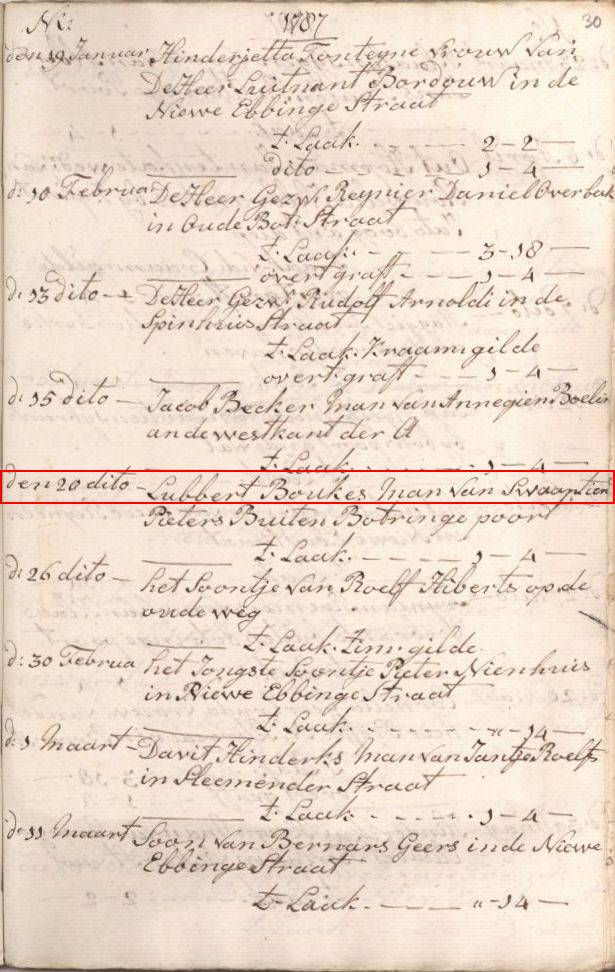 No: 1787 30
den 19 Januar Hinderjetta Fonteyne vrouw van
De Heer Luitnant Bordouw in de
Niewe Ebbinge Straat
t Laak. 2-2-
dito 1-4-
d: 10 Februa De Heer Gezw. Reynier Daniel Overbak
in Oude Bot: Straat
t Laak. 3-18-
overt graft 1-4-
d: 13 dito De Heer Gezw. Rudolf Arnoldi in de
Spinhuis Straat
t Laak. Kraam: gilde
overt graft 1-4-
d: 15 dito Jacob Becker man van Annegien Boelen
an de westkant der A
t Laak. 1-4-
den 20 dito Lubbert Boukes man van Swaantien
Pieters Buiten Botringe poort
t Laak. 1-4-
d: 26 dito het Soontje van Roelf Hiberts op de
oude weg
t Laak. tim: gilde
d: 30 Februa het Jongste Soontje Pieter Nienhuis
in Niewe Ebbinge Straat
t Laak. "-14-
d: 1 Maart Davit Hinderks man van Jantje Roelfs
in Sleemender Straat
t Laak. 1-4-
d: 11 Maart Soon van Bernars Geers in de Niewe
Ebbinge Straat
t Laak. "-14-